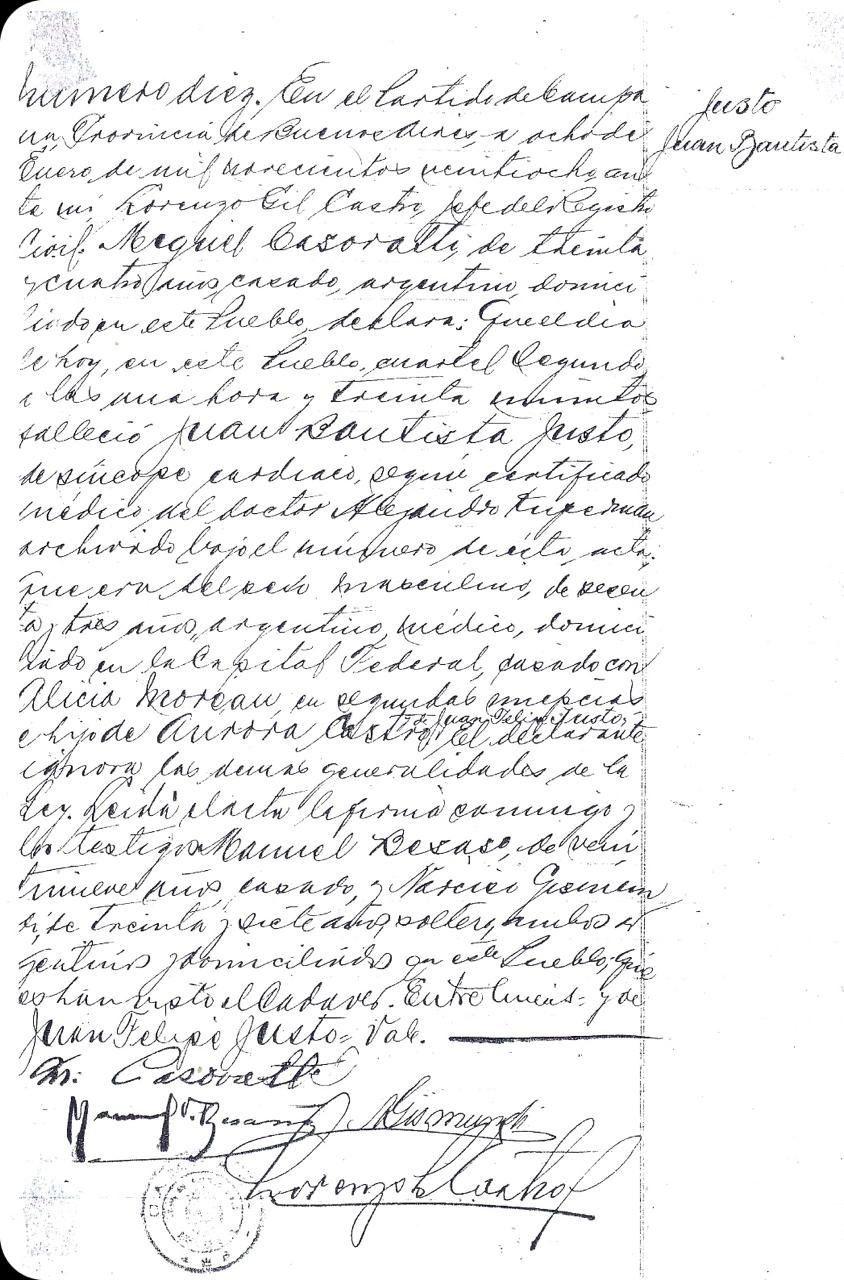 Justo
Juan Bautista
Número diez. En el Partido de Campa
na, Provincia de Buenos Aires, a ocho de
Enero de mil novecientos veintiocho, an
te mi, Lorenzo Gil Castro, Jefe del Registro
Civil. Miguel Casoratti, de treinta
y cuatro años, casado, argentino, domici
liado en este Pueblo, declara: Que el dia
de hoy, en este Pueblo, cuartel Segundo,
a las una hora y treinta minutos
falleció Juan Bautista Justo,
de síncope cardiaco, según certificado
médico del doctor Alejandro Kuperman
archivado bajo el número de esta acta;
que era del sexo masculino, de sesen
ta y tres años, argentino, médico, domici
liado en la Capital Federal, casado con
Alicia Moreau, en segundas nupcias
y de Juan Felipe Justo,
e hijo de Aurora Castro. El declarante
ignora las demas generalidades de la
Ley. Leida el acta la firmó conmigo y
los testigos Manuel Besaso, de vein
tinueve años, casado, y Narciso Gismun
di, de treinta y siete años, soltero, ambos ar
gentinos y domiciliados en este Pueblo, que
es han visto el Cadaver. Entre lineas = y de
Juan Felipe Justo = Vale.
M. Casoratti
Manuel V. Besaso N Gismundi
Lorenzo G. Castro